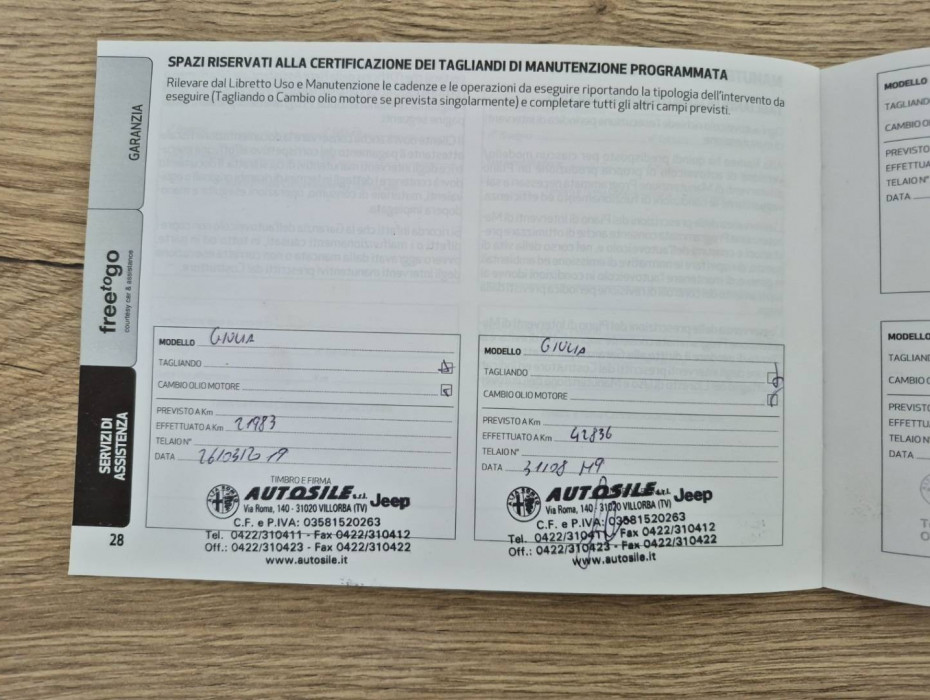 SPAZI RISERVATI ALLA CERTIFICAZIONE DEI TAGLIANDI DI MANUTENZIONE PROGRAMMATA
Rilevare dal Libretto Uso e Manutenzione le cadenze e le operazioni da eseguire riportando la tipologia dell'intervento da
eseguire (Tagliando o Cambio olio motore se prevista singolarmente) e completare tutti gli altri campi previsti.
GARANZIA
freetogo
courtesy car & assistance
SERVIZI DI
ASSISTENZA
28
MODELLO GIULIA
TAGLIANDO
CAMBIO OLIO MOTORE
PREVISTO A Km
EFFETTUATO A Km 21983
TELAIO N°
DATA
TIMBRO E FIRMA
AUTOSILE s.r.l. Jeep
Via Roma, 140 - 31020 VILLORBA (TV)
C.F. e P.IVA: 03581520263
Tel. 0422/310411 - Fax 0422/310412
Off.: 0422/310423 - Fax 0422/310422
www.autosile.it
MODELLO GIULIA
TAGLIANDO
CAMBIO OLIO MOTORE
PREVISTO A Km
EFFETTUATO A Km 42836
TELAIO N°
DATA
AUTOSILE s.r.l. Jeep
Via Roma, 140 - 31020 VILLORBA (TV)
C.F. e P.IVA: 03581520263
Tel. 0422/310411 Fax 0422/310412
Off.: 0422/310423 - Fax 0422/310422
www.autosile.it
MODELLO
TAGLIAND
CAMBIO OL
PREVISTO
EFFETTUA
TELAIO N°
DATA
MODELLO
TAGLIAN
CAMBIO
PREVIST
EFFETTU
TELAIO N
DATA